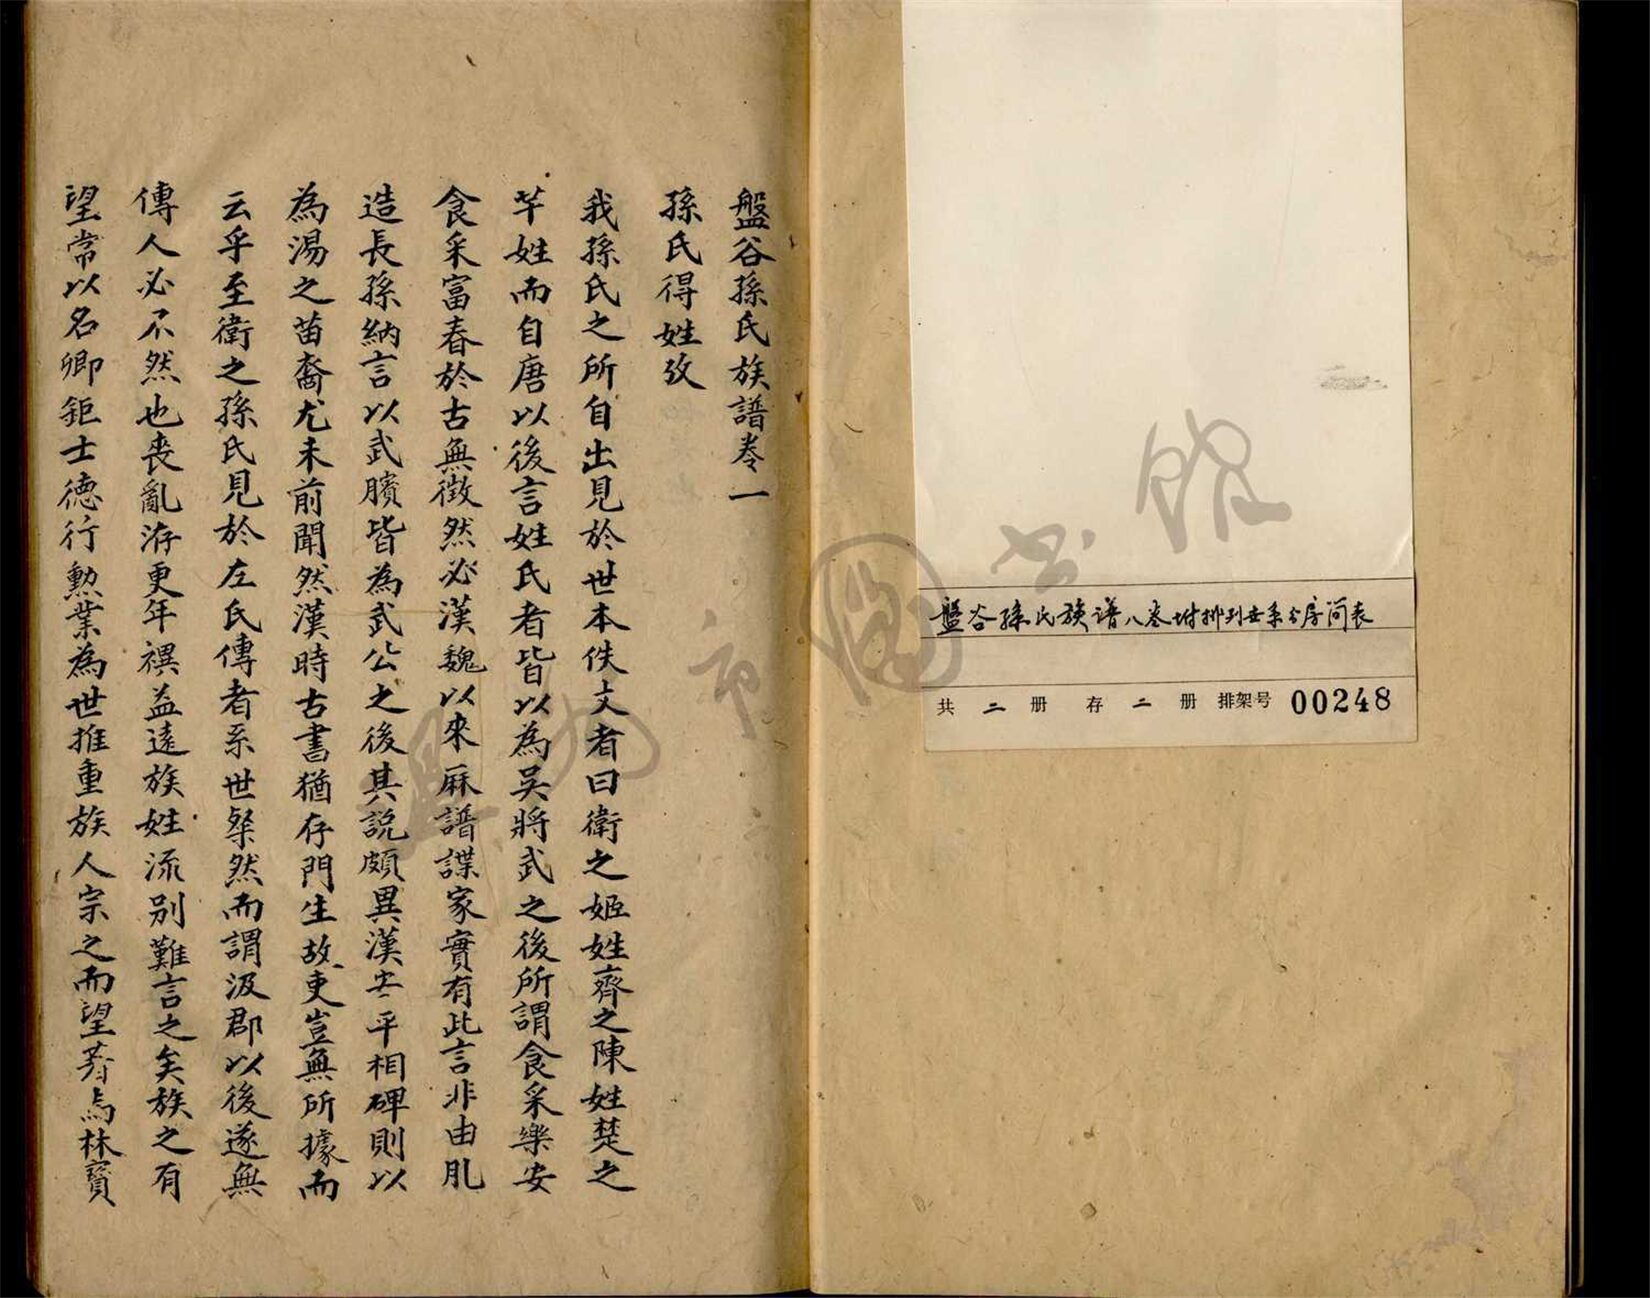 盤谷孫氏族譜卷一
孫氏得姓攷
我孫氏之所自出見於世本佚文者曰衛之姬姓齊之陳姓楚之
芉姓而自唐以後言姓氏者皆以為吳將武之後所謂食采樂安
食采富春於古無徵然必漢魏以來厤譜諜家實有此言非由肊
造長孫納言以武臏皆為武公之後其説頗異漢安平相碑則以
為湯之苗裔尤未前聞然漢時古書猶存門生故吏豈無所據而
云乎至衛之孫氏見於左氏傳者系世粲然而謂汲郡以後遂無
傳人必不然也喪亂洊更年禩益遠族姓流别難言之矣族之有
望常以名卿鉅士德行勲業為世推重族人宗之而望著焉林寶
盤谷孫氏族谱八卷坿排列世系分房简表
共 二 册 存 二 册 排架号 00248
温州市圖书馆